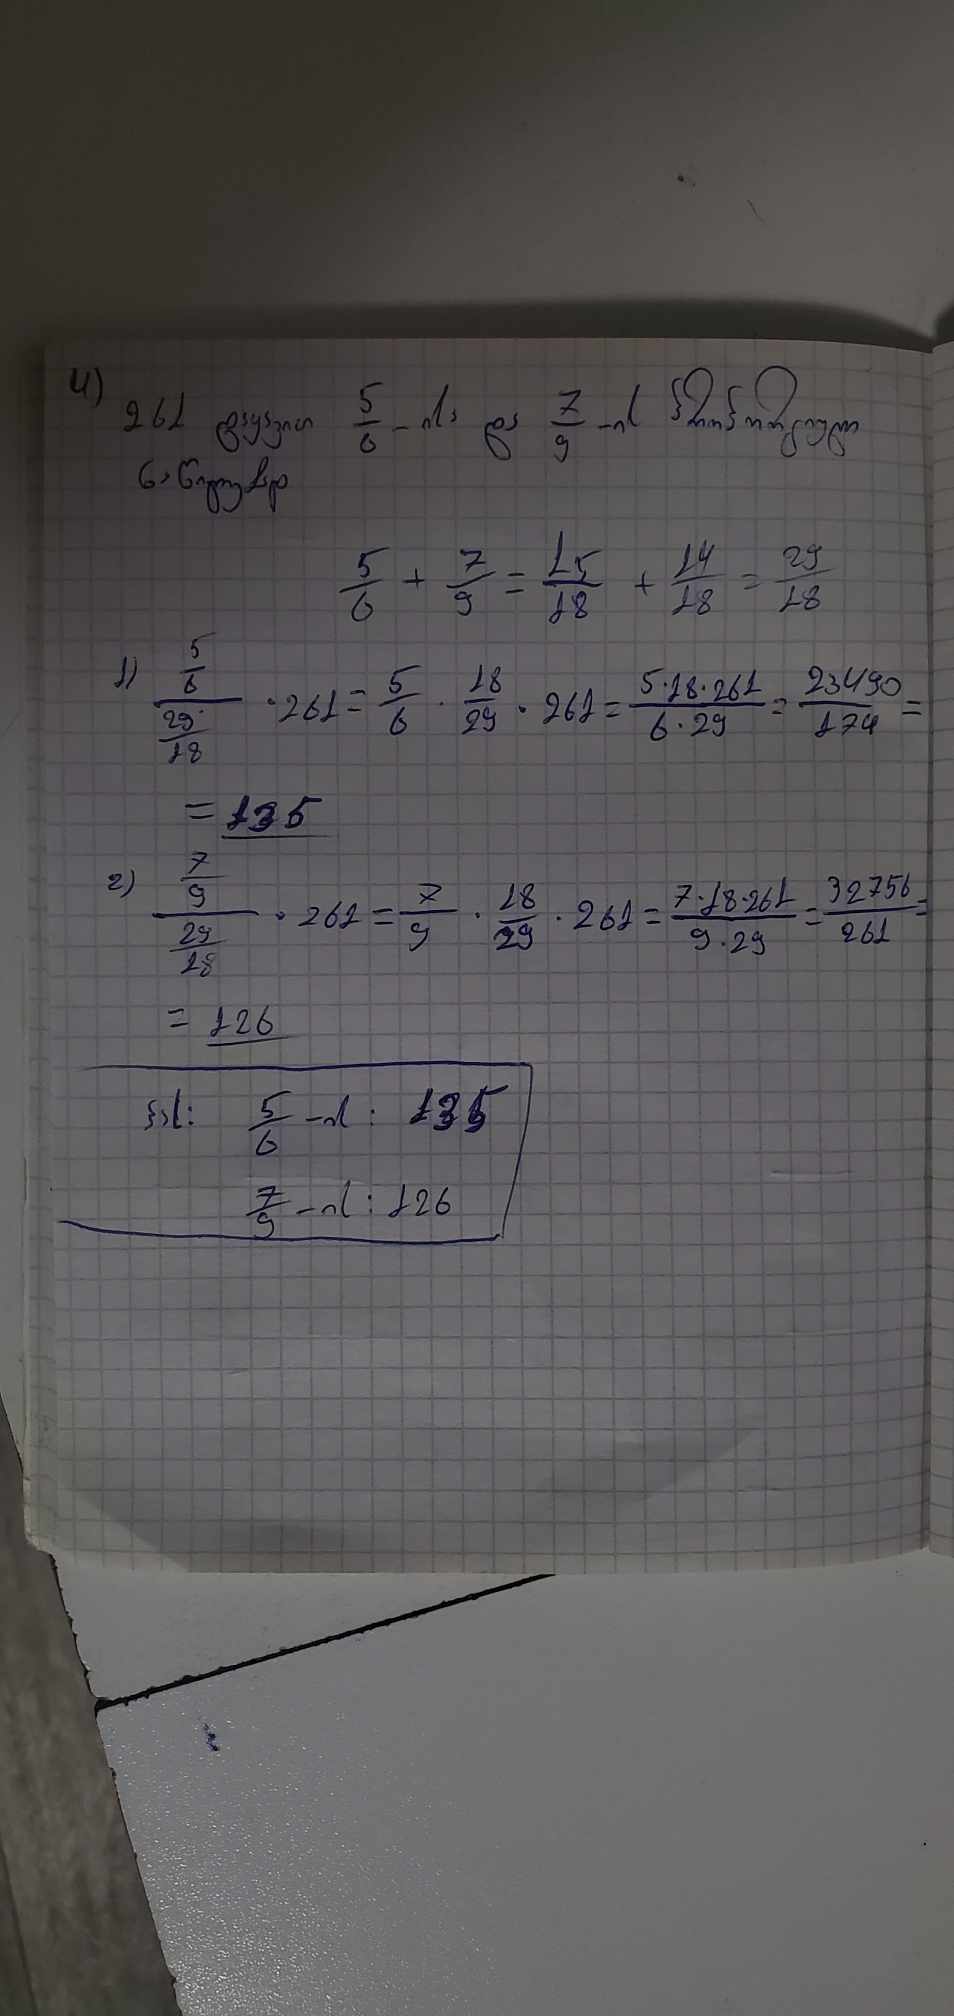 4)
261 დაყავით 5/6 - ისა და 7/9 - ის პროპორციულ
ნაწილებად
5/6 + 7/9 = 15/18 + 14/18 = 29/18
1) (5/6)/(29/18) · 261 = 5/6 · 18/29 · 261 = (5·18·261)/(6·29) = 23490/174 =
= 135
2) (7/9)/(29/18) · 261 = 7/9 · 18/29 · 261 = (7·18·261)/(9·29) = 32756/261 =
= 126
პას: 5/6 - ის: 135
7/9 - ის: 126